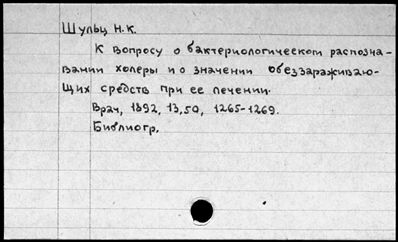 Шульц Н.К.
К вопросу о бактериологическом распозна-
вании холеры и о значении обеззараживаю-
щих средств при ее лечении.
Врач, 1892, 13, 50, 1265-1269.
Библиогр.